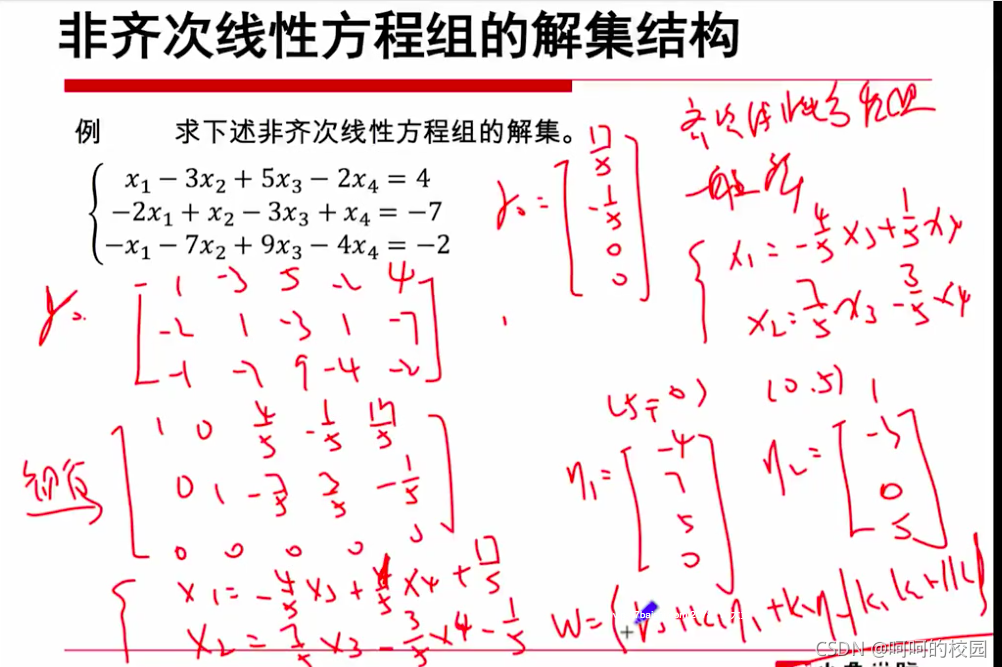 非齐次线性方程组的解集结构
例 求下述非齐次线性方程组的解集。
x₁ − 3x₂ + 5x₃ − 2x₄ = 4
−2x₁ + x₂ − 3x₃ + x₄ = −7
−x₁ − 7x₂ + 9x₃ − 4x₄ = −2
齐次线性方程组
一般解
γ₀ = [17/5 -1/5 0 0]
x₁ = -4/5 x₃ + 1/5 x₄
x₂ = 7/5 x₃ - 3/5 x₄
γ₀
1 -3 5 -2 4
-2 1 -3 1 -7
-1 -7 9 -4 -2
1 0 4/5 -1/5 17/5
0 1 -7/5 3/5 -1/5
0 0 0 0 0
x₁ = -4/5 x₃ + 1/5 x₄ + 17/5
x₂ = 7/5 x₃ - 3/5 x₄ - 1/5
(5, 0) (0.5)
η₁ = [-4 7 5 0]
η₂ = [1 -3 0 5]
W = {γ₀ + k₁η₁ + k₂η₂ | k₁ k₂ ∈ K}
CSDN @呵呵的校园